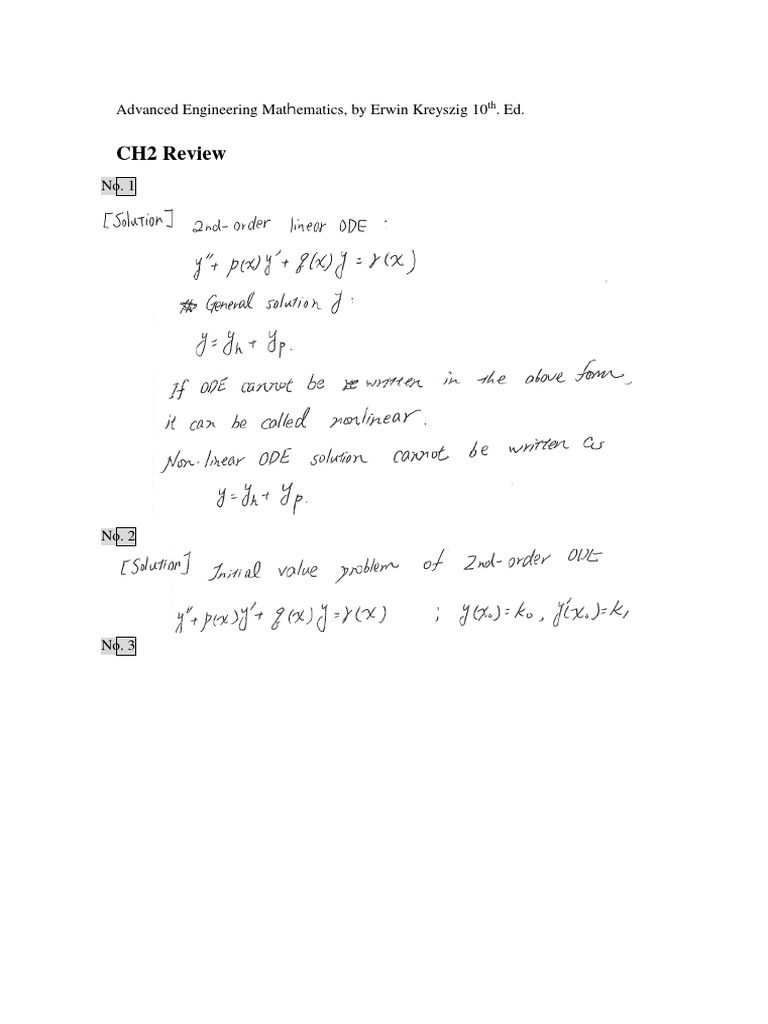 Advanced Engineering Mathematics, by Erwin Kreyszig 10th. Ed.
CH2 Review
No. 1
[Solution] 2nd-order linear ODE :
y″ + p(x)y′ + q(x)y = r(x)
General solution y :
y = yh + yp.
If ODE cannot be written in the above form,
it can be called nonlinear.
Non-linear ODE solution cannot be written as
y = yh + yp.
No. 2
[Solution] Initial value problem of 2nd-order ODE
y″ + p(x)y′ + q(x)y = r(x) ; y(x₀) = k₀, y′(x₀) = k₁
No. 3